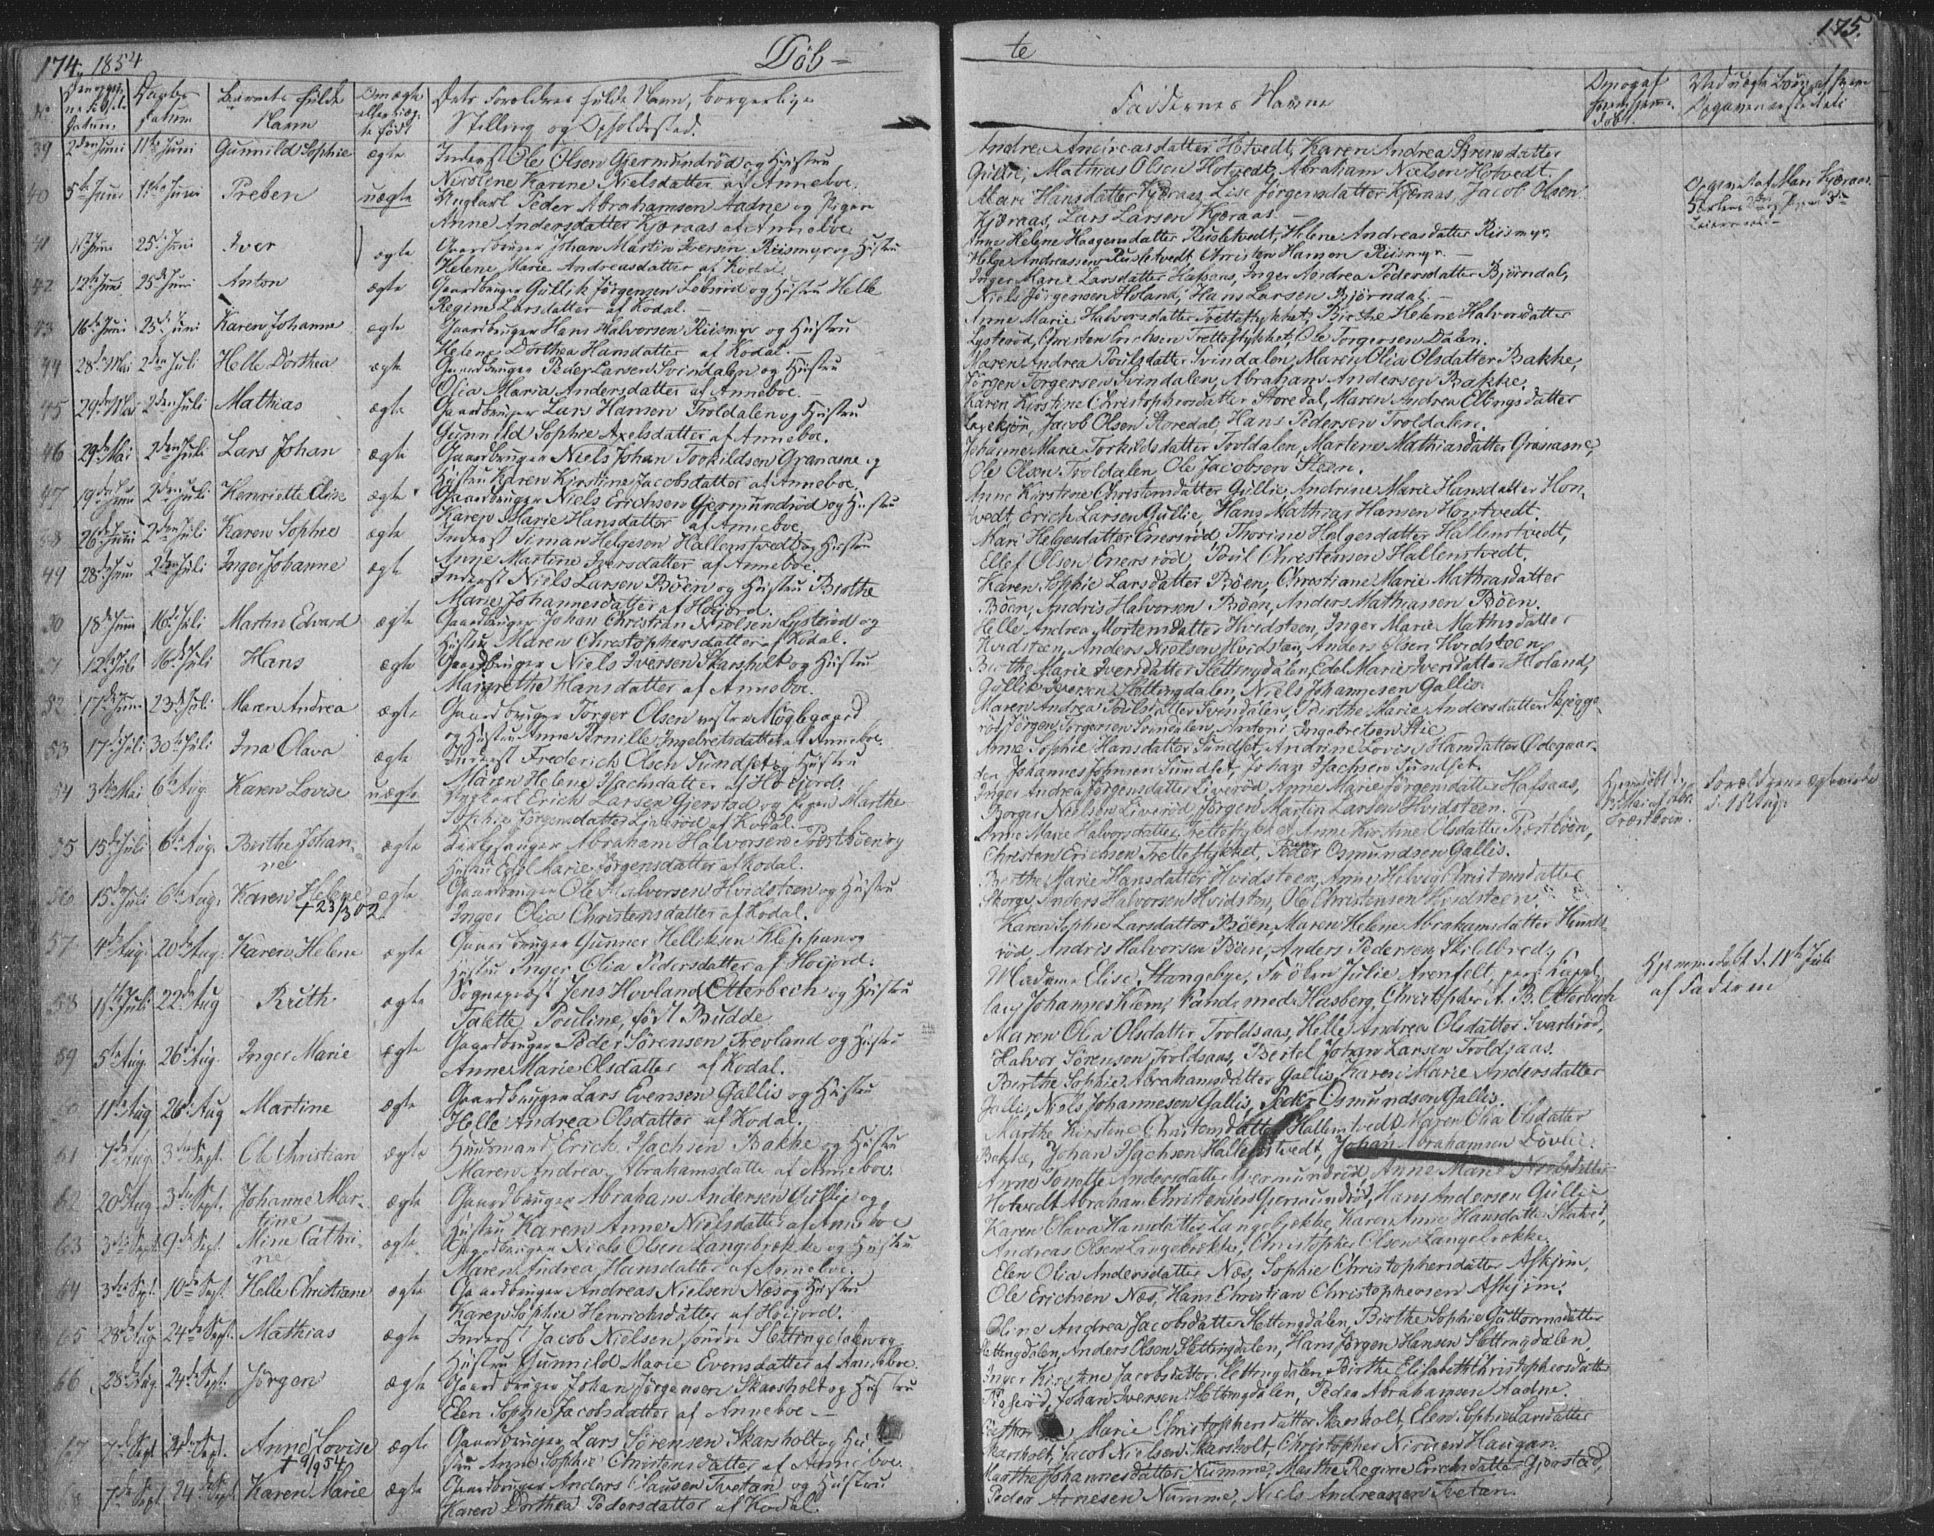 174. 1854 Døb-
No Barnets fulde Navn ægte eller uægte født Dets Foreldres fulde Navn, borgerlige
Stilling og Opholdssted.
39 2den Juni 11te Juni Gunnild Sophie ægte Inderst Ole Olsen Gjermundrød og Hustru
Nicoline Karene Nielsdatter af Anneboe.
40 5te Juni 11te Juni Preben uægte Ungkarl Peder Abrahamsen Aadne og Pigen
Anne Andersdatter Kjæraas af Anneboe
41 25de Juni Iver ægte Gaardbruger Johan Martin Iversen Riismyr og Hustru
Helene Marie Andreasdatter af Kodal.
42 12te Juni 25de Juni Anton ægte Gaardbruger Gullik Jørgensen og Hustru Helle
Regine Larsdatter af Kodal.
43 16de Juni 25de Juni Karen Johanne ægte Gaardbruger Hans Halvorsen Riismyr og Hustru
Helene Dorthea Hansdatter af Kodal.
44 28de Mai 2den Juli Helle Dorthea ægte Gaardbruger Peder Larsen Svindalen og Hustru
Olia Maria Andersdatter af Anneboe.
45 29de Mai 2den Juli Mathias ægte Gaardbruger Lars Hansen Troldalen og Hustru
Gunnild Sophie Axelsdatter af Anneboe.
46 29de Mai 2den Juli Lars Johan ægte Gaardbruger Niels Johan Torkildsen Granaasne og
Hustru Karen Kirstine Jacobsdatter af Anneboe.
47 19de Juni 2den Juli Henriette Elise ægte Gaardbruger Niels Erichsen Gjermundrød og Hustru
Karen Marie Hansdatter af Anneboe.
48 26de Juni 2den Juli Karen Sophie ægte Inderst Siman Helgesen Hallenstvedt og Hustru
Anne Martine Iversdatter af Anneboe.
49 28de Juni 2den Juli Inger Johanne ægte Inderst Niels Larsen Bøen og Hustru Birthe
Marie Johannesdatter af Høijord.
50 18de Juni 16de Juli Martin Edvard ægte Gaardbruger Johan Christian Nielsen Lysterød og
Hustru Maren Christophersdatter af Kodal.
51 12te Juli 16de Juli Hans ægte Gaardbruger Niels Iversen Skarsholt og Hustru
Margrethe Hansdatter af Anneboe.
52 17de Juni 23de Juli Maren Andrea ægte Gaardbruger Torger Olsen vestre Møglegaard
og Hustru Anne Pernille Ingebretsdatter af Anneboe.
53 17de Juli 30te Juli Ina Olava ægte Inderst Frederick Olsen Sundset og Hustru
Maren Helene Isachsdatter af Høijord.
54 3die Mai 6te Aug. Karen Lovise uægte Ungkarl Erich Larsen Gjerstad og Pigen Marthe
Sophie Jørgensdatter Liverød af Kodal.
55 15de Juli 6te Aug. Berthe Johan-
ne ægte Kirkesanger Abraham Halvorsen Prestbøen og
Hustru Edel Marie Jørgensdatter af Kodal.
56 15de Juli 6te Aug. Karen Helene ægte Gaardbruger Ole Halvorsen Hvidsteen og Hustru
+ 23/3 02 Inger Olia Christensdatter af Kodal.
57 4de Aug. 20de Aug. Karen Helene ægte Gaardbruger Gunner Helliksen Kleppan og
Hustru Inger Olia Pedersdatter af Høijord.
58 1ste Juli 22de Aug Ruth ægte Sogneprest Jens Hovland Otterbech og Hustru
Talette Pouline, født Budde
59 5te Aug. 26de Aug. Inger Marie ægte Gaardbruger Peder Sørensen Trevland og Hustru
Anne Marie Olsdatter af Kodal.
60 11te Aug 26de Aug Martine ægte Gaardbruger Lars Evensen Gallis og Hustru
Helle Andrea Olsdatter af Kodal.
61 7de Aug 3die Sept. Ole Christian ægte Huusmand Erich Isachsen Bakke og Hustru
Maren Andrea Abrahamsdatter af Anneboe.
62 20de Aug 3die Sept. Johanne Mar-
tine ægte Gaardbruger Abraham Andersen Gullie og
Hustru Karen Anne Nielsdatter af Anneboe
63 3die Sept 9de Sept. Mine Cathri-
ne ægte Gaardbruger Niels Olsen Langebrække og Hustru
Maren Andrea Hansdatter af Anneboe.
64 3die Sept. 10de Sept. Helle Christiane ægte Gaardbruger Andreas Nielsen Næs og Hustru
Karen Sophie Henrichsdatter af Høijord.
65 28de Aug 24de Sept. Mathias ægte Inderst Jacob Nielsen søndre Slettingdalen og
Hustru Gunnild Marie Evensdatter af Anneboe.
66 28de Aug. 24de Sept. Jørgen ægte Gaardbruger Johan Jørgensen Skarsholt og Hustru
Elen Sophie Jacobsdatter af Anneboe.
67 7de Sept 24de Sept. Anne Lovise ægte Gaardbruger Lars Sørensen Skarsholt og Hu
+ 9/9 54 stru Anne Sophie Christensdatter af Anneboe.
7de Sept. 24de Sept. Karen Marie ægte Gaardbruger Anders Clausen Tvetan og Hustru
Karen Dorthea Pedersdatter af Kodal.
te 175.
Faddernes Navne
Andrea Andreasdatter Hotvedt, Karen Andrea Sørensdatter
Gullie, Mathias Olsen Hotvedt, Abraham Nielsen Hotvedt.
Mari Hansdatter Kjæraas, Lise Jørgensdatter Kjæraas, Jacob Olsen
Kjæraas, Lars Larsen Kjæraas.
Anne Helene Haagensdatter Rusletvedt, Helene Andreasdatter Riismyr.
Helge Andreassen Rusletvedt, Christen Hansen Riismyr.
Inger Marie Larsdatter Hafsaas, Inger Andrea Pedersdatter Bjørndal,
Niels Jørgensen Holand, Hans Larsen Bjørndal.
Anne Marie Halvorsdatter Trettestykket, Birthe Helene Halvorsdatter
Lysterød, Christen Erichsen Trettestykket, Ole Torgersen Dalen.
Maren Andrea Poulsdatter Svindalen, Maren Olia Olsdatter Bakke,
Jørgen Torgersen Svindalen, Abraham Andersen Bakke.
Karen Kirstine Christophersdatter Storedal, Maren Andrea Ellingsdatter
Jacob Olsen Storedal, Hans Pedersen Troldalen.
Johanne Marie Torkildsdatter Troldalen, Martene Mathiasdatter Granaasne,
Ole Olsen Troldalen, Ole Jacobsen Steen.
Anne Kirstene Christensdatter Gullie, Andrine Marie Hansdatter Hon-
tvedt, Erich Larsen Gullie, Hans Mathias Hansen Hontvedt.
Mari Helgesdatter Enersrød, Thorine Helgesdatter Hallenstvedt,
Ellef Olsen Enersrød, Poul Christensen Hallenstvedt.
Karen Sophie Larsdatter Bøen, Christiane Marie Mathiasdatter
Bøen, Andris Halvorsen Bøen, Anders Mathiassen Bøen.
Helle Andrea Mortensdatter Hvidsteen, Inger Marie Mathisdatter
Hvidsteen, Anders Nielsen Hvidsteen, Anders Olsen Hvidsteen.
Birthe Marie Iversdatter Slettingdalen, Edel Marie Iversdatter Holand,
Gullik Iversen Slettingdalen, Niels Johannesen Gallis.
Maren Andrea Poulsdatter Svindalen, Birthe Marie Andersdatter Skjegge-
rød, Jørgen Torgersen Svindalen, Antoni Ingebretsen Stie.
Anne Sophie Hansdatter Sundset, Andrine Lovise Hansdatter Ødegaar-
den, Johannes Johnsen Sundset, Johan Isachsen Sundset.
Inger Andrea Jørgensdatter Liverød, Anne Marie Jørgensdatter Hafsaas,
Borger Nielsen Liverød, Jørgen Martin Larsen Hvidsteen.
Anne Marie Halvorsdatter Trettestykket, Anne Kirstine Olsdatter Prestbøen,
Christen Erichsen Trettestykket, Peder Osmundsen Gallis.
Birthe Marie Hansdatter Hvidsteen, Anne Helvig Christensdatter
Skorge, Anders Halvorsen Hvidsteen, Ole Christensen Hvidsteen.
Karen Sophie Larsdatter Bøen, Maren Helene Abrahamsdatter
rød, Andris Halvorsen Bøen, Anders Pedersen Skildbred.
Madame Elise Stangebye, Frøken Julie Arenfelt, pers: Kappel-
lan Johannes Klem, Hasberg, Christopher A. B. Otterbech
Maren Olia Olsdatter Troldsaas, Helle Andrea Olsdatter Svartsrød,
Halvor Sørensen Troldsaas, Bertel Johan Larsen Troldsaas.
Birthe Sophie Abrahamsdatter Gallis, Karen Marie Andersdatter
Gallis, Niels Johannesen Gallis, Peder Osmundsen Gallis.
Marthe Kirstine Christensdatter Hallenstvedt, Maren Olia Olsdatter
Bakke, Johan Isachsen Hallenstvedt, Johan Abrahamsen Døvle.
Anne Tonette Andersdatter Gjermundrød, Anne Marie Nielsdatter
Hotvedt, Abraham Christensen Gjermundrød, Hans Andersen Gullie
Karen Olava Hansdatter Langebrække, Karen Anne Hansdatter
Andreas Olsen Langebrække, Christopher Olsen Langebrække.
Elen Olia Andersdatter Næs, Sophie Christophersdatter Askjim,
Ole Erichsen Næs, Hans Christian Christophersen Askjim.
Oline Andrea Jacobsdatter Slettingdalen, Birthe Sophie Guttormsdatter
Slettingdalen, Anders Olsen Slettingdalen, Hans Jørgen Hansen Slettingdalen,
Inger Kirstine Jacobsdatter Slettingdalen, Birthe Elisabeth Christophersdatter
Johan Iversen Slettingdalen, Peder Abrahamsen Aadne.
Marie Christophersdatter Skarsholt, Elen Sophie Larsdatter
Skarsholt, Jacob Nielsen Skarsholt, Christopher Nirisen Haugan.
Marthe Johannesdatter Numme, Marthe Regine Erichsdatter Gjerstad,
Peder Arnesen Numme, Niels Andreasen Tvetan.
Hjemmedøbt d. 11te Juli
af Faderen